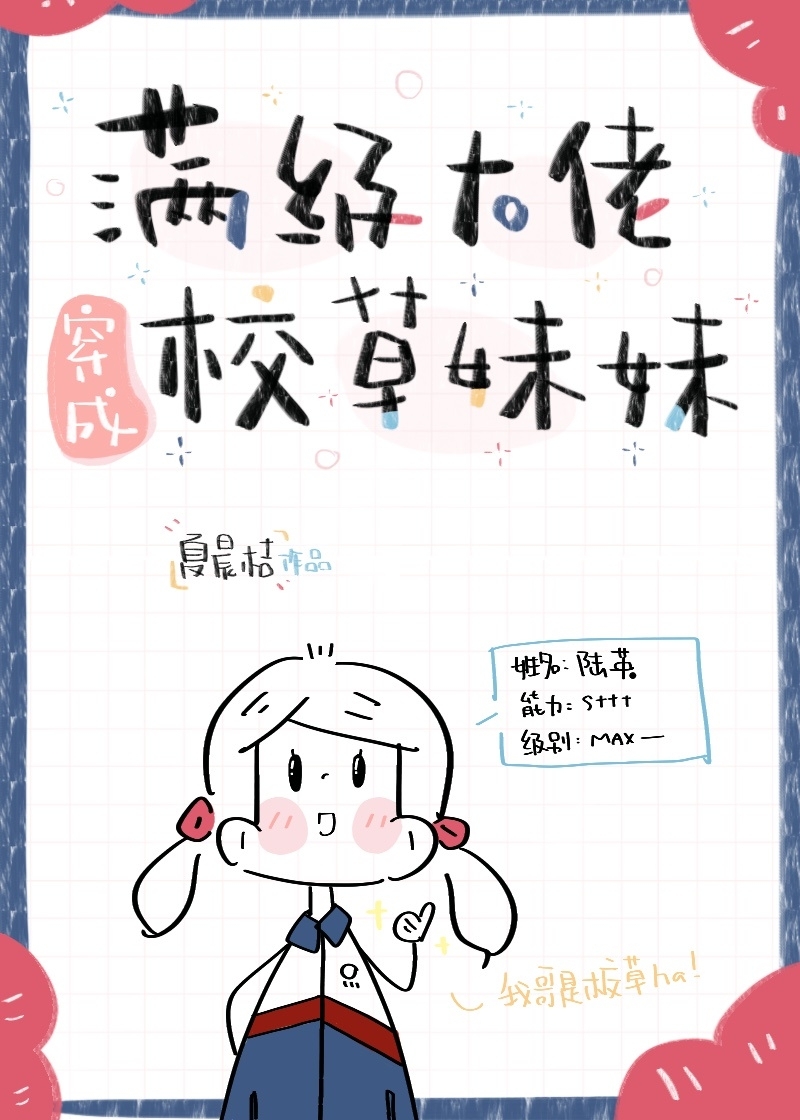 满级大佬
穿成
校草妹妹
夏晨桔作品
姓名：陆英
能力：S+++
级别：MAX—
我哥是校草ha!